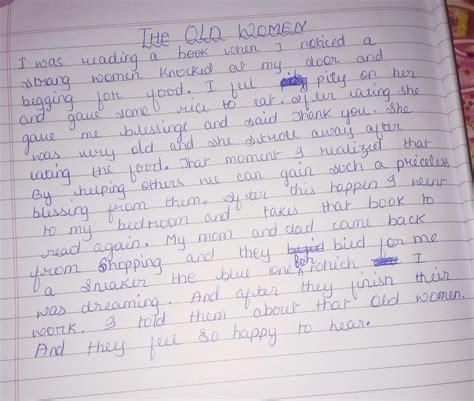 THE OLD WOMEN
I was reading a book when I noticed a
strang women knocked at my door and
bugging for food. I ful pity on her
and gave some rice to eat. After eating she
gave me blessings and said Thank you. She
was very old and she stroll away after
eating the food. That moment I realized that
By helping others we can gain such a priceless
blessing from them. After this happen I went
to my bedroom and takes that book to
read again. My mom and dad came back
from shopping and they bird for me
a sneaker the blue one which I
was dreaming. And after they finish their
work, I told them about that Old women.
And they feel so happy to hear.